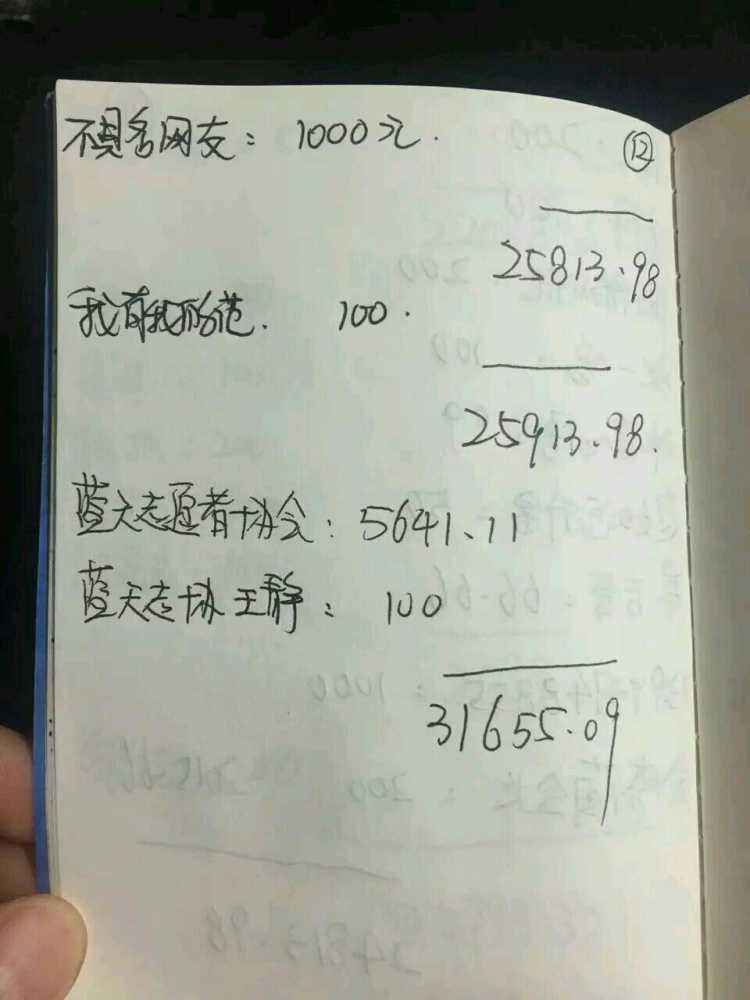 不具名网友：1000元.
⑫
25813.98
我有我的范. 100.
25913.98.
蓝天志愿者协会：5641、11
蓝天志协王静：100
31655.09